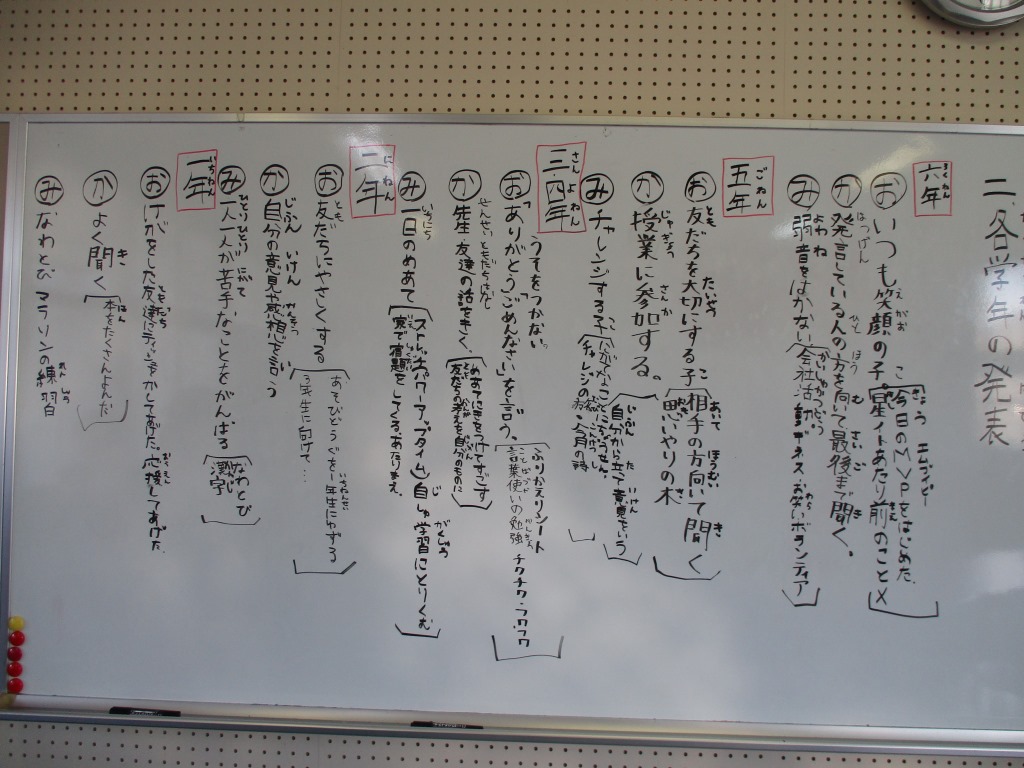 二、各学年の発表
六年
お いつも笑顔の子。
今日のMVPをはじめた。
星イトあたり前のこと×
か 発言している人の方を向いて最後まで聞く。
み 弱音をはかない
会社活動
ボランティア
五年
お 友だちを大切にする子
相手の方向いて聞く
思いやりの木
か 授業に参加する。
自分から立って意見をいう
み チャレンジする子
三・四年
うそをつかない
お 「ありがとう」「ごめんなさい」を言う。
ふりかえりシート
言葉使いの勉強 チクチク・フワフワ
か 先生 友達の話をきく。
めあてに気をつけてすごす
友だちの考えを自分のものに
み 一日のめあて
自しゅ学習にとりくむ
家で宿題をしてくる。あたりまえ。
二年
お 友だちにやさしくする。
あそびどうぐを一年生にゆずる
3年生に向けて…
か 自分の意見や感想を言う
み 一人一人が苦手なことをがんばる
なわとび
漢字
一年
お けがをした友達にティッシュをかしてあげた。応援してあげた。
か よく聞く
本をたくさんよんだ
み なわとび マラソンの練習